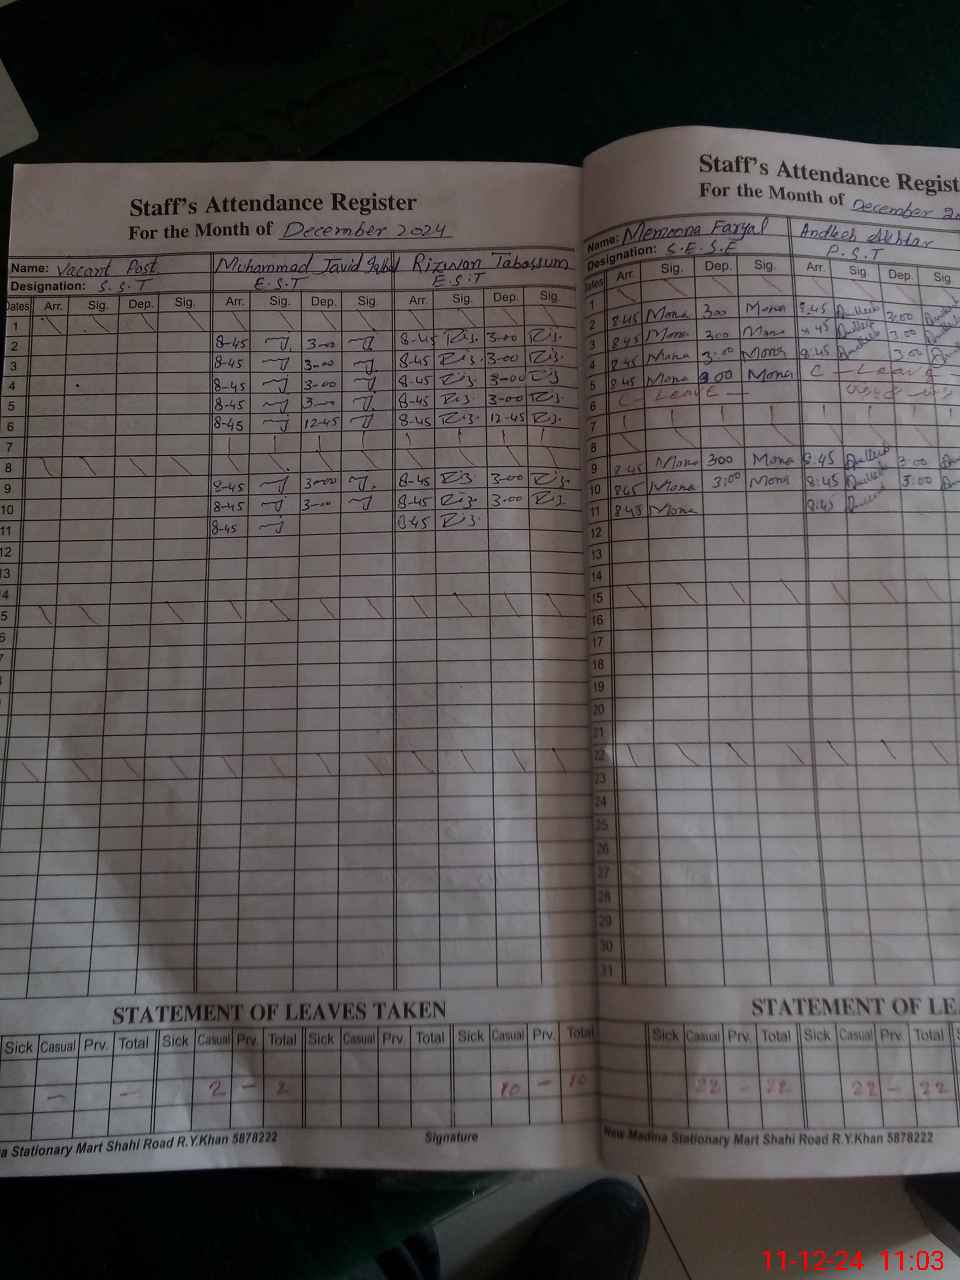 Staff's Attendance Register
For the Month of December 2024
Name: Vacant Post Muhammad Javid Iqbal Rizwan Tabassum
Designation: S.S.T E.S.T E.S.T
Dates Arr. Sig. Dep. Sig. Arr. Sig. Dep. Sig. Arr. Sig. Dep. Sig.
1
2 8-45 3-00 8-45 Riz. 3-00 Riz.
3 8-45 3-00 8-45 Riz. 3-00 Riz.
4 8-45 3-00 8-45 Riz 3-00 Riz
5 8-45 3-00 8-45 Riz 3-00 Riz.
6 8-45 12-45 8-45 Riz. 12-45 Riz.
7
8
9 8-45 3-00 8-45 Riz 3-00 Riz.
10 8-45 3-00 8-45 Riz. 3-00 Riz.
11 8-45 8-45 Riz.
12
13
4
5
6
7
STATEMENT OF LEAVES TAKEN
Sick Casual Prv. Total Sick Casual Prv. Total Sick Casual Prv. Total Sick Casual Prv. Total
— — 2 – 2 10 – 10
a Stationary Mart Shahi Road R.Y.Khan 5878222 Signature
Staff's Attendance Regist
For the Month of December 20
Name: Memoona Faryal Akhtar
Designation: S.E.S.E P.S.T
Dates Arr. Sig. Dep. Sig. Arr. Sig. Dep. Sig
1
2 8:45 Mona 3:00 Mona 8:45 3:00
3 8:45 Mona 3:00 Mona 8:45 3:00
4 8:45 Mona 3:00 Mona 8:45 3:00
5 8:45 Mona 3:00 Mona C – Leave –
6 C – Leave –
7
8
9 8:45 Mona 3:00 Mona 8:45 3:00
10 8:45 Mona 3:00 Mona 8:45 3:00
11 8:45 Mona 8:45
12
13
14
15
16
17
18
19
20
21
22
23
24
25
26
27
28
29
30
31
STATEMENT OF LEA
Sick Casual Prv. Total Sick Casual Prv. Total S
22 – 22 22 – 22
New Madina Stationary Mart Shahi Road R.Y.Khan 5878222
11-12-24 11:03